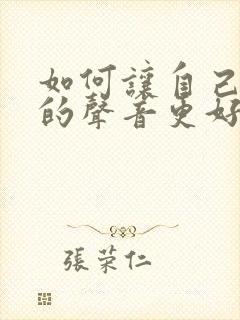 如何讓自己
的聲音更好
張荣仁